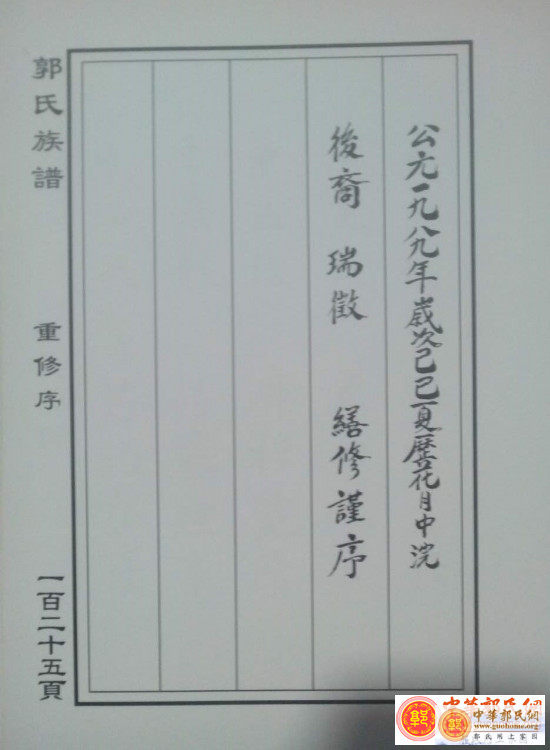 公元一九八九年歲次己巳夏歷花月中浣
後裔 瑞徵 繕修謹序
郭氏族譜
重修序
一百二十五頁
中華郭氏網
www.guohome.org
郭氏网上家园